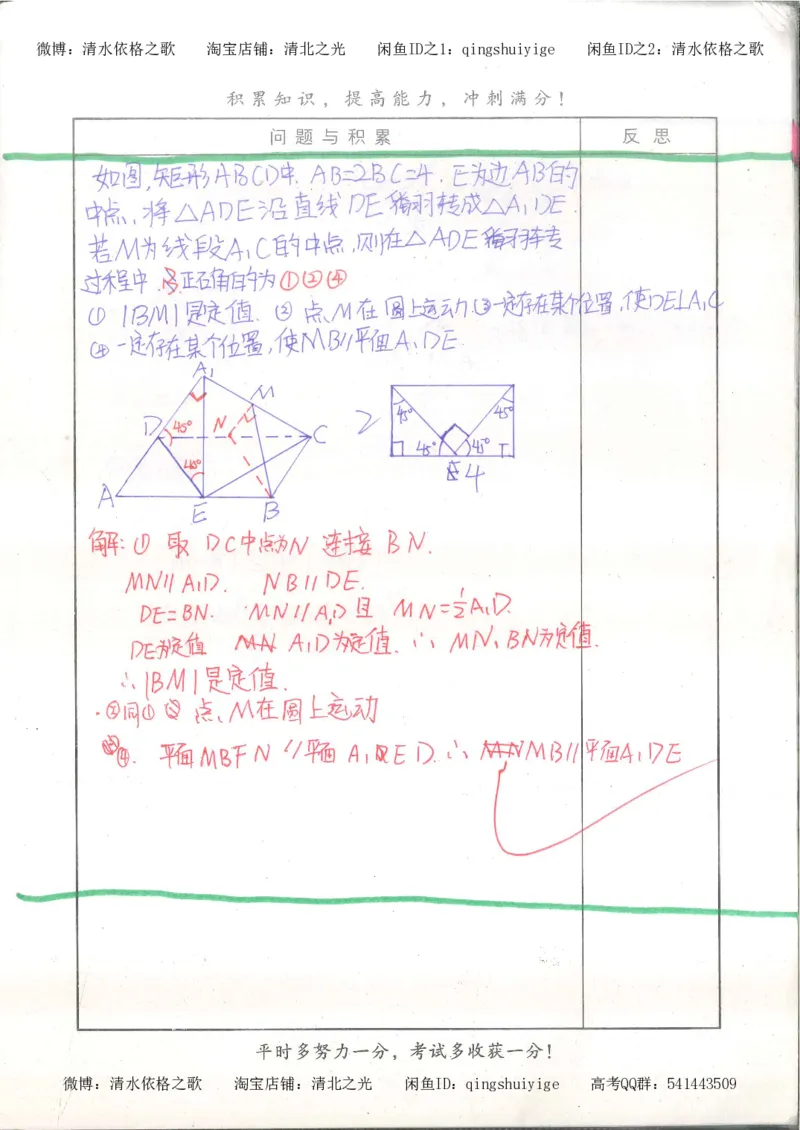 微博：清水依格之歌 淘宝店铺：清北之光 闲鱼ID之1：qingshuiyige 闲鱼ID之2：清水依格之歌
积累知识，提高能力，冲刺满分！
问题与积累 反思
如图，矩形ABCD中，AB=2BC=4．E为边AB的
中点，将△ADE沿直线DE翻转成△A₁DE．
若M为线段A₁C的中点，则在△ADE翻转
过程中，正确的为①②④
① |BM|是定值． ② 点M在圆上运动．③一定存在某个位置，使DE⊥A₁C
④一定存在某个位置，使MB∥平面A₁DE．
A₁
M
D 45° N C
45°
A E B
2 45° 45°
45° 45°
E 4
解：① 取DC中点为N 连接BN．
MN∥A₁D． NB∥DE．
DE=BN． MN∥A₁D且MN=½A₁D．
DE为定值 A₁D为定值．∴MN、BN为定值．
∴|BM|是定值．
②同① 点M在圆上运动
④． 平面MBFN∥平面A₁ED．∴MB∥平面A₁DE
平时多努力一分，考试多收获一分！
微博：清水依格之歌 淘宝店铺：清北之光 闲鱼ID：qingshuiyige 高考QQ群：541443509